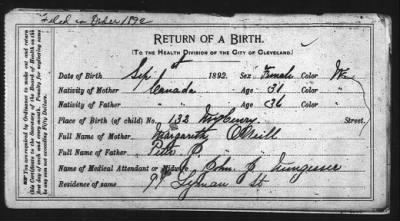 Filed in 1892
RETURN OF A BIRTH.
(TO THE HEALTH DIVISION OF THE CITY OF CLEVELAND.)
Date of Birth Sep 1st 1892. Sex Female Color W
Nativity of Mother Canada Age 31 Color "
Nativity of Father " Age 36 Color "
Place of Birth (of child) No. 132 Street,
Full Name of Mother Margareth O'Neill
Full Name of Father Peter
Name of Medical Attendant or Midwife John
Residence of same 99 Lyman St
You are required by Ordinance to make out and return this Certificate to the Secretary of the Board of Health on the last day of each and every month. Penalty for neglecting same is any sum not exceeding Fifty Dollars.